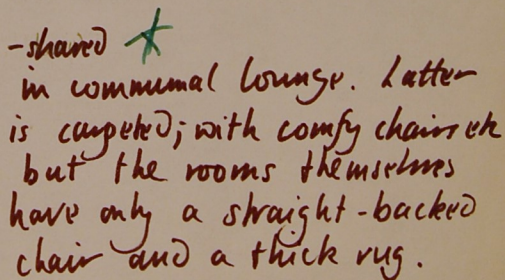 -shared
in communal lounge. Latter
is carpeted; with comfy chairs etc
but the rooms themselves
have only a straight-backed
chair and a thick rug.